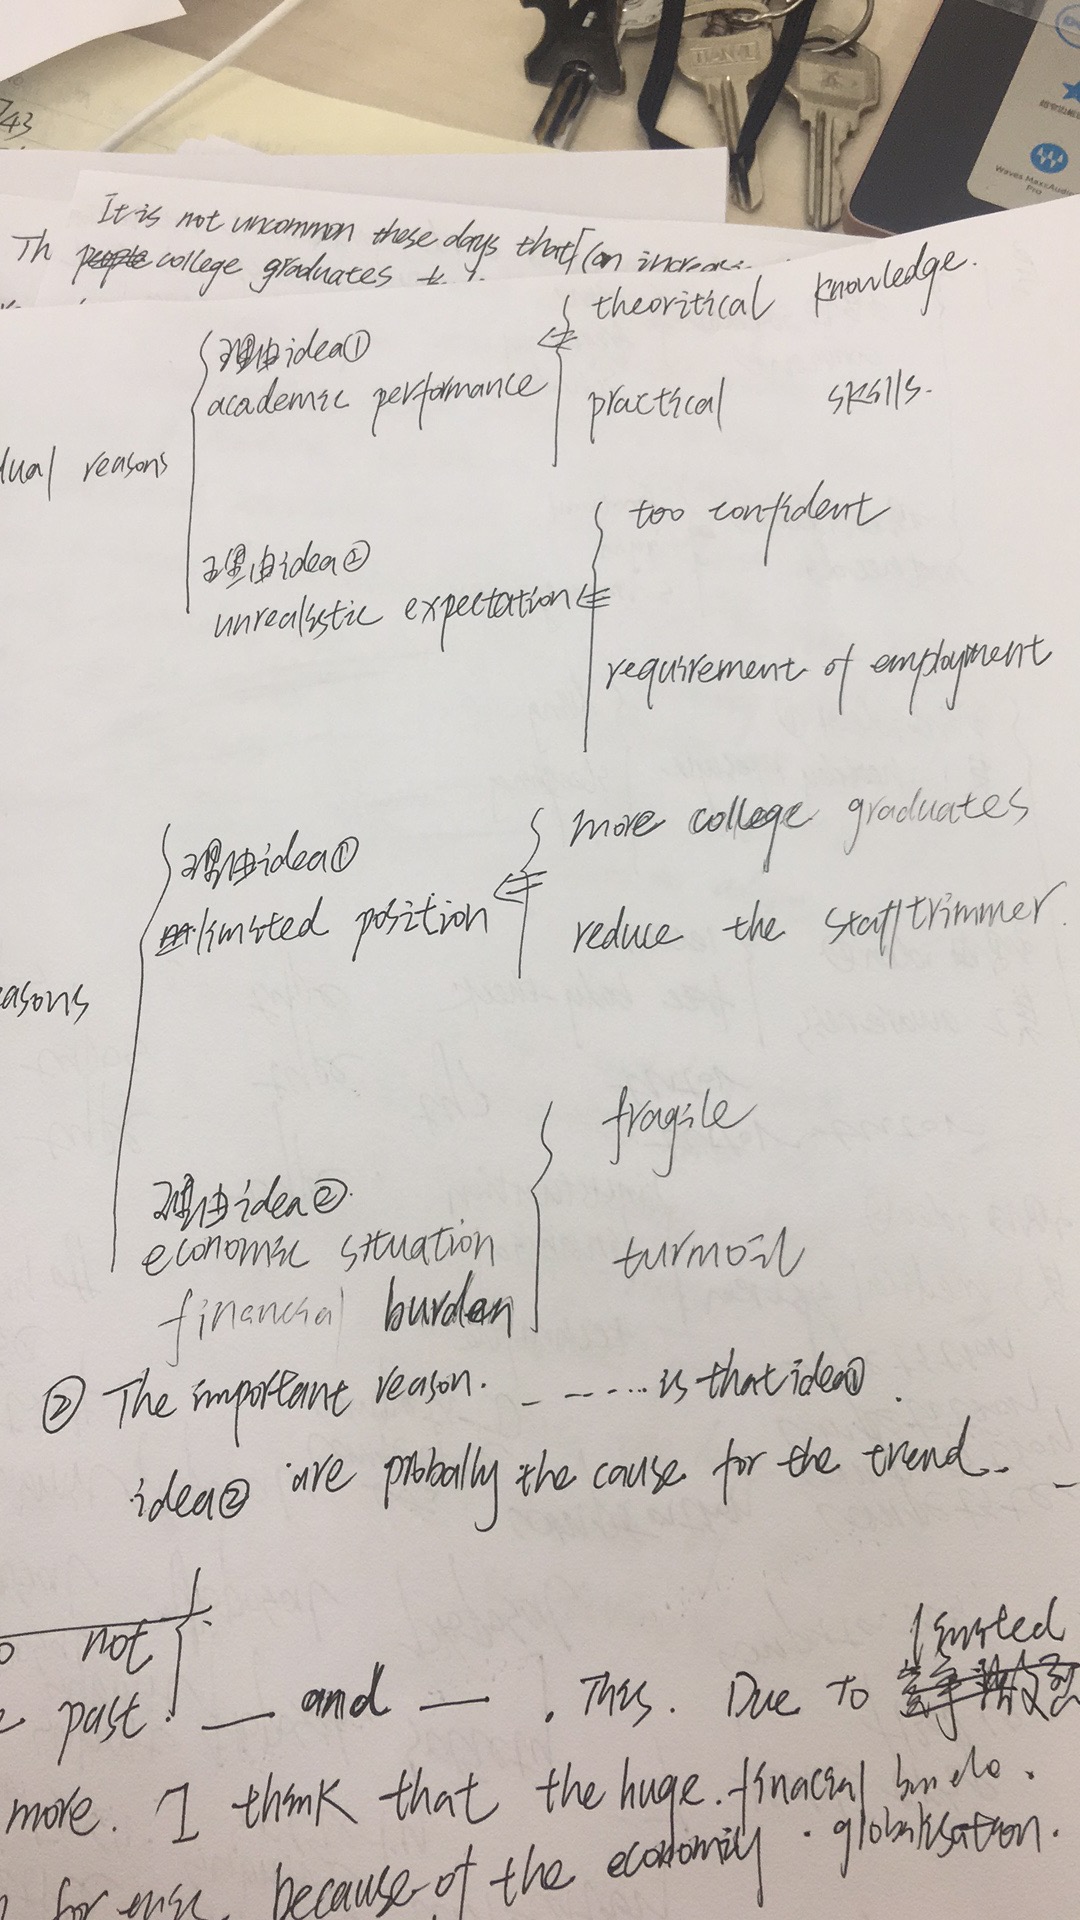 743
It is not uncommon these days that (an increas
Th people college graduates
theoritical knowledge.
理由idea①
academic performance
practical skills.
dual reasons
too confident
理由idea②
unrealistic expectation
requirement of employment
more college graduates
理由idea①
limited position
reduce the staff/trimmer.
easons
fragile
理由idea②.
economic situation
turmoil
financial burden
② The important reason. - - - - ... is that idea①.
idea② are probally the cause for the trend..
not
past. — and — . This. Due to limited
more. I think that the huge. finacial
because of the economy . globalisation.
TIANYU
Waves MaxxAudio
Pro